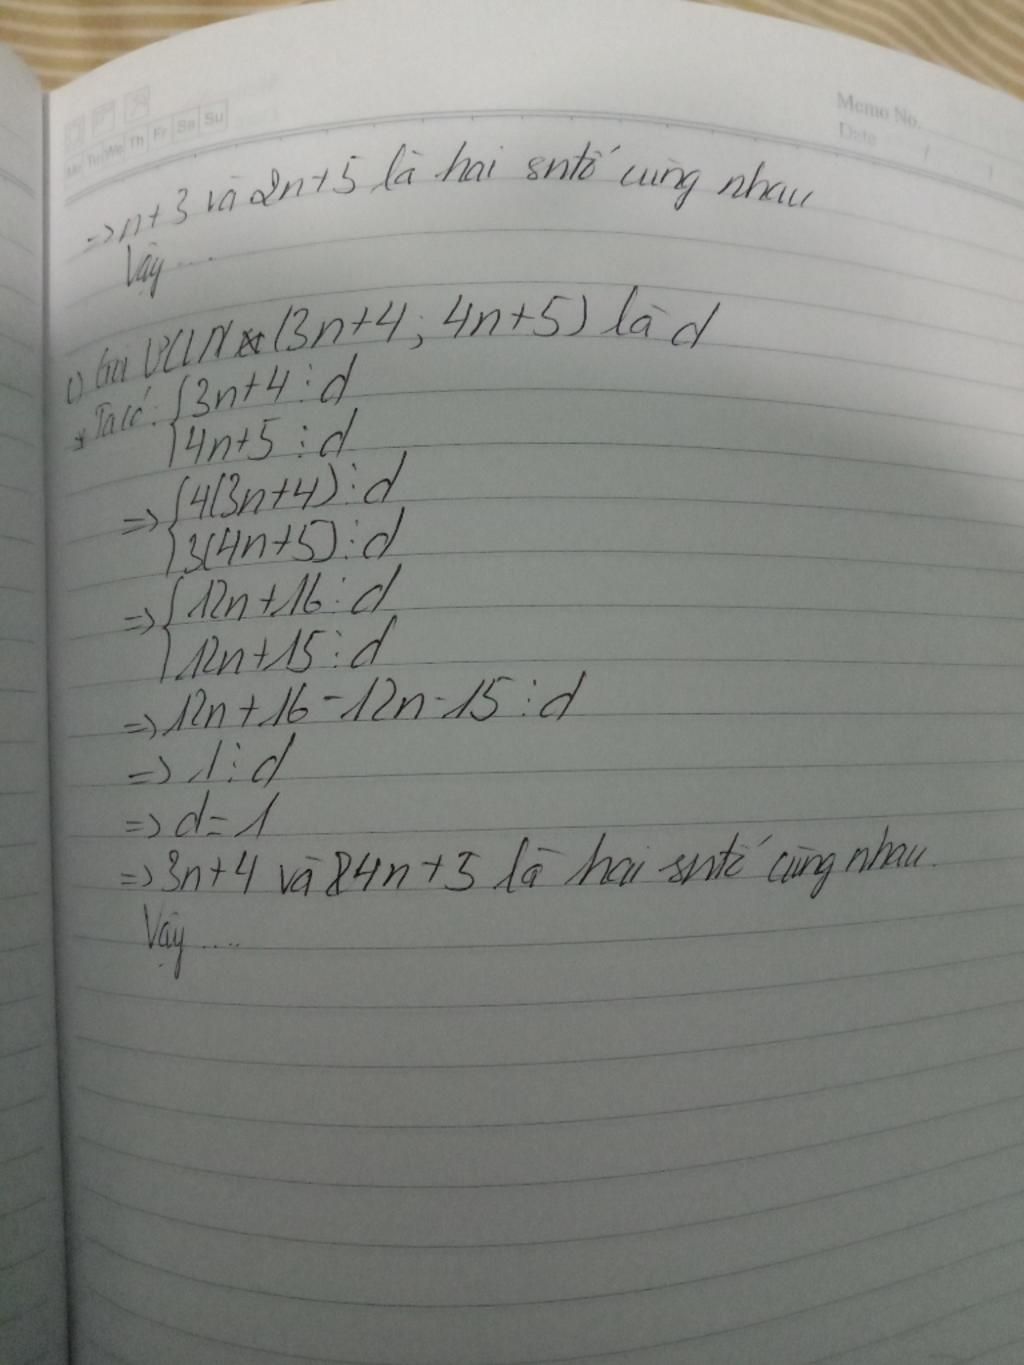 Memo No.
Date
Mo Tu We Th Fr Sa Su
=> n+3 và 2n+5 là hai sntố cùng nhau
Vậy ....
c) Gọi ƯCLN (3n+4; 4n+5) là d
* Ta có: { 3n+4 ⋮ d
4n+5 ⋮ d
=> { 4(3n+4) ⋮ d
3(4n+5) ⋮ d
=> { 12n+16 ⋮ d
12n+15 ⋮ d
=> 12n+16-12n-15 ⋮ d
=> 1 ⋮ d
=> d=1
=> 3n+4 và 4n+5 là hai sntố cùng nhau.
Vậy ....